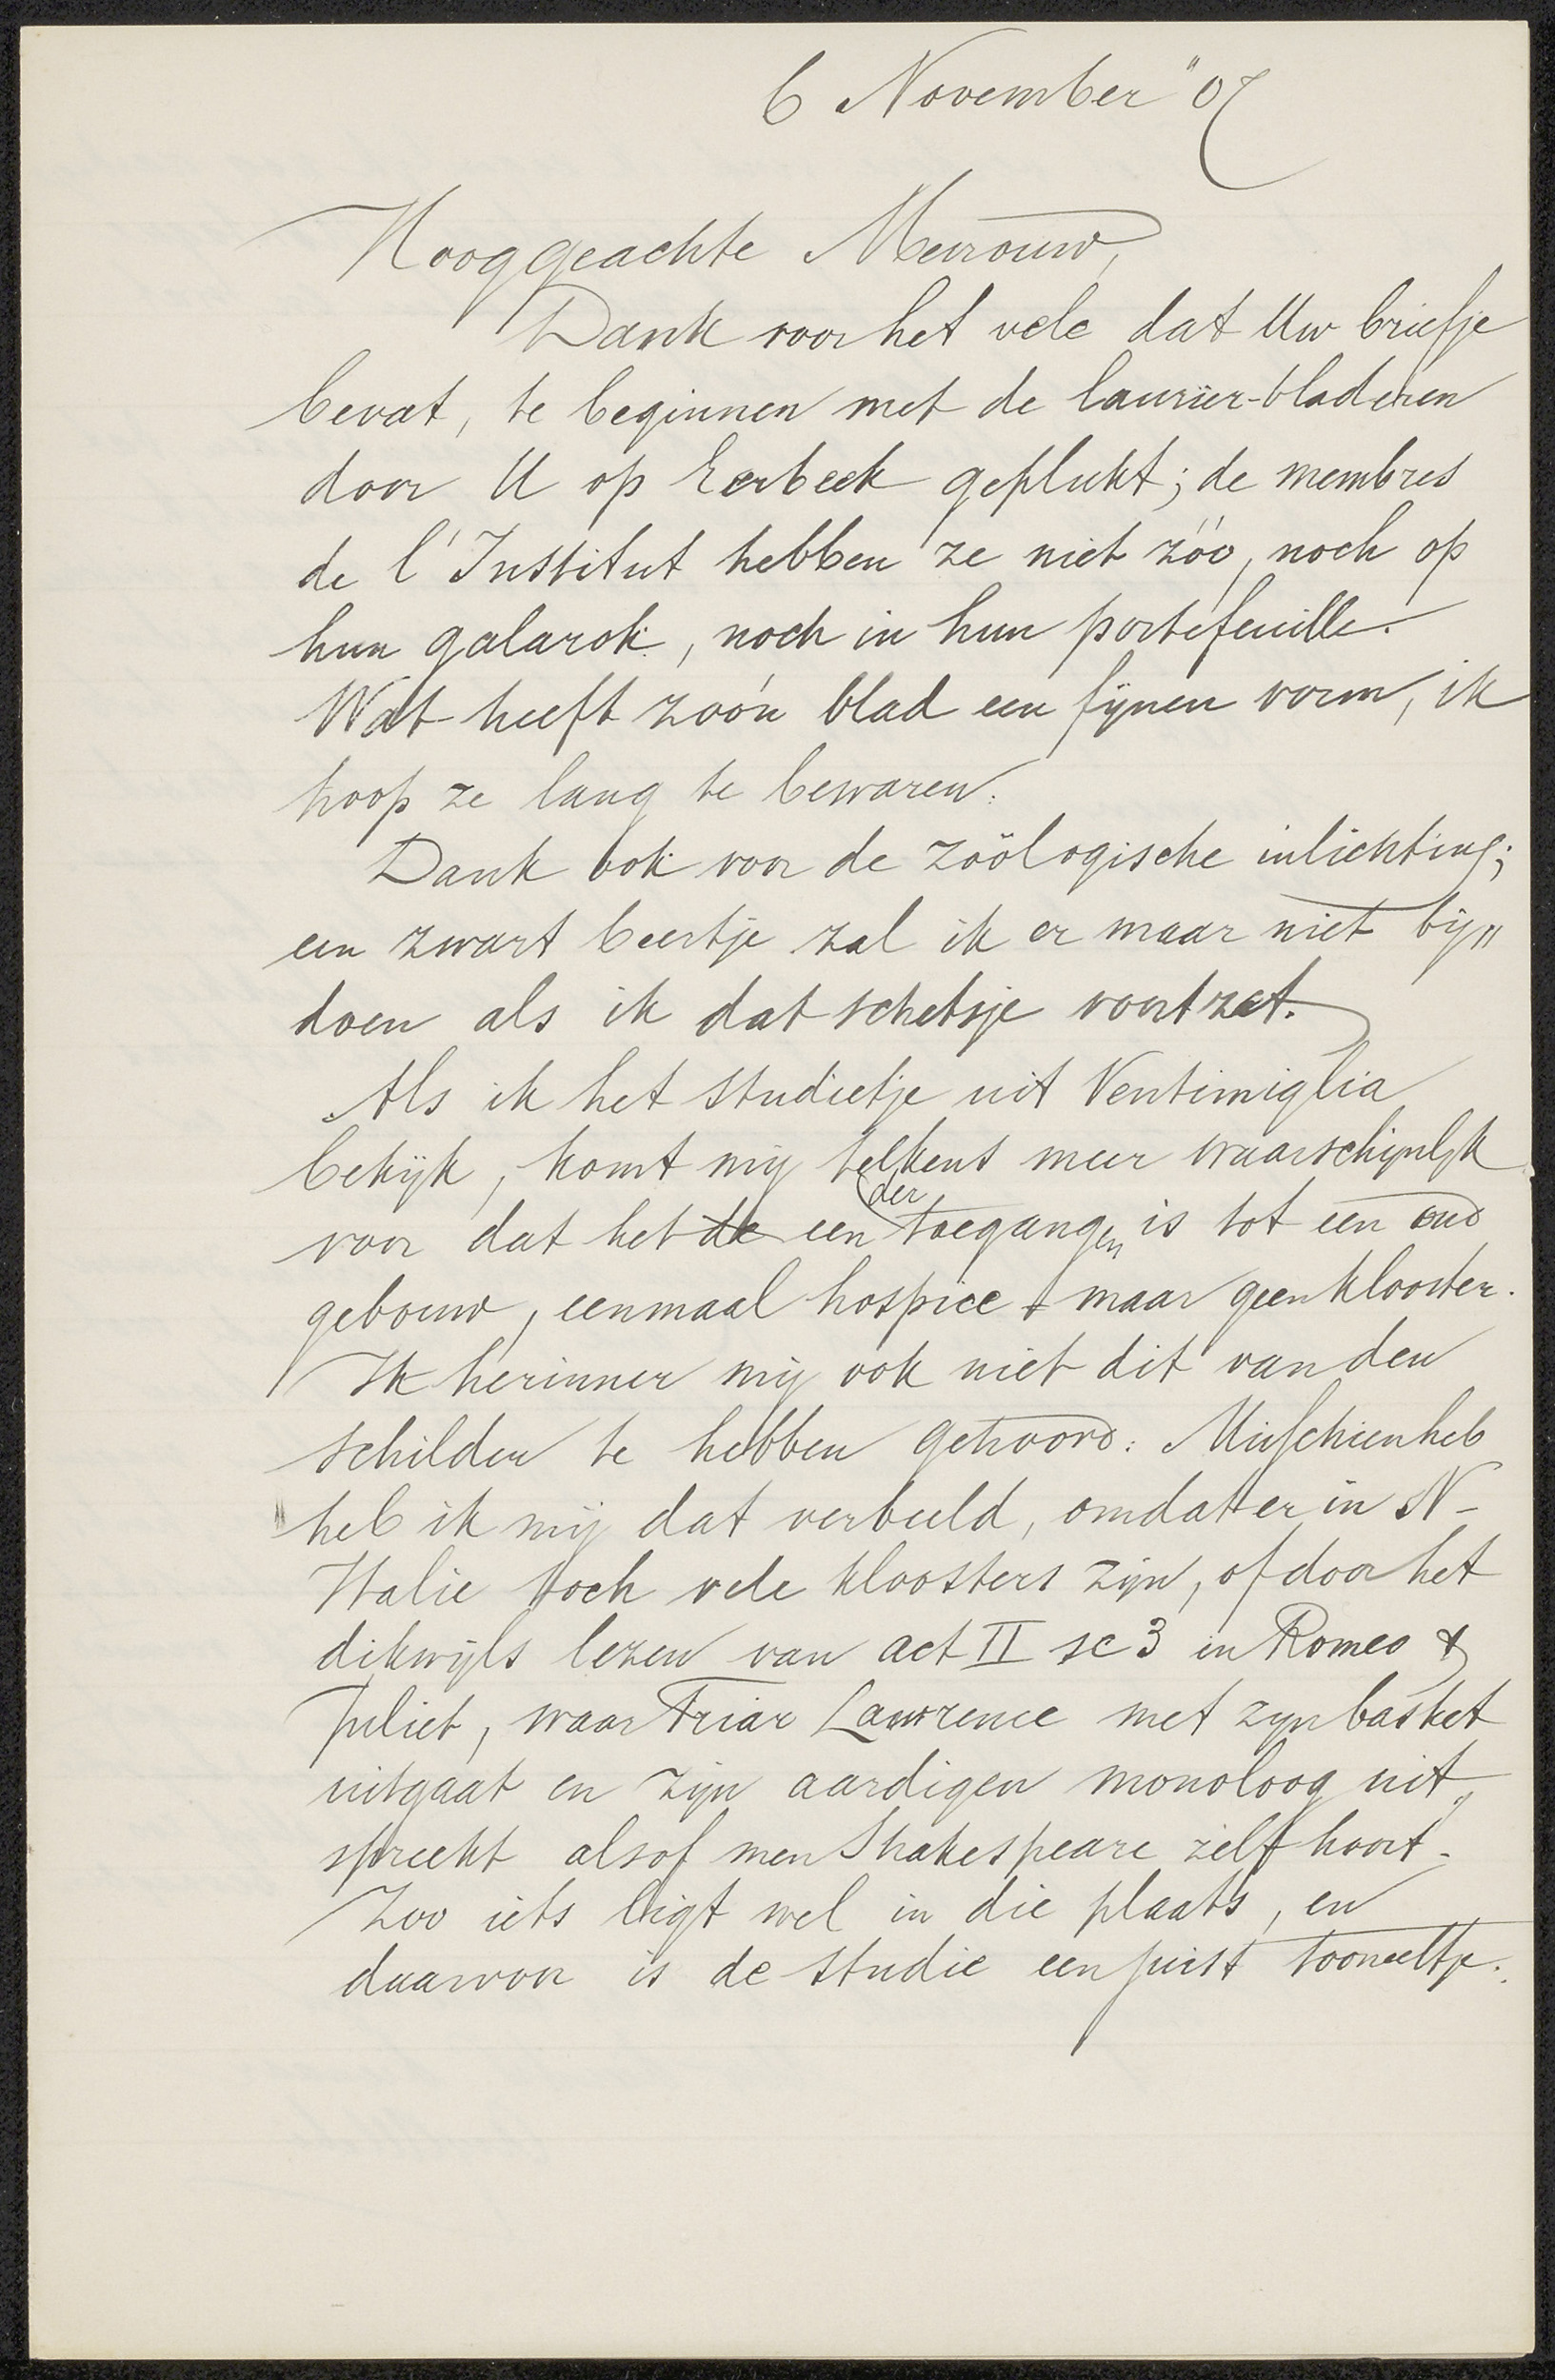 6 November "07
Hooggeachte Mevrouw,
Dank voor het vele dat Uw briefje
bevat, te beginnen met de laurier-bladeren
door U op Eerbeek geplukt; de membres
de l'Institut hebben ze niet zóó, noch op
hun galarok, noch in hun portefeuille.
Wat heeft zoo'n blad een fijnen vorm, ik
hoop ze lang te bewaren.
Dank ook voor de zoölogische inlichting;
een zwart beertje zal ik er maar niet bij"
doen als ik dat schetsje voortzet.
Als ik het studietje uit Ventimiglia
bekijk, komt mij telkens meer waarschijnlijk
voor dat het de een der toegangen is tot een oud
gebouw, eenmaal hospice & maar geen klooster.
Ik herinner mij ook niet dit van den
schilder te hebben gehoord. Misschien heb
heb ik mij dat verbeeld, omdat er in N-
Italie toch vele kloosters zijn, of door het
dikwijls lezen van act II sc 3 in Romeo &
Juliet, waar Friar Lawrence met zijn basket
uitgaat en zijn aardigen monoloog uit"
spreekt alsof men Shakespeare zelf hoort.
Zoo iets ligt wel in die plaats, en
daarvoor is de studie een juist tooneeltje.